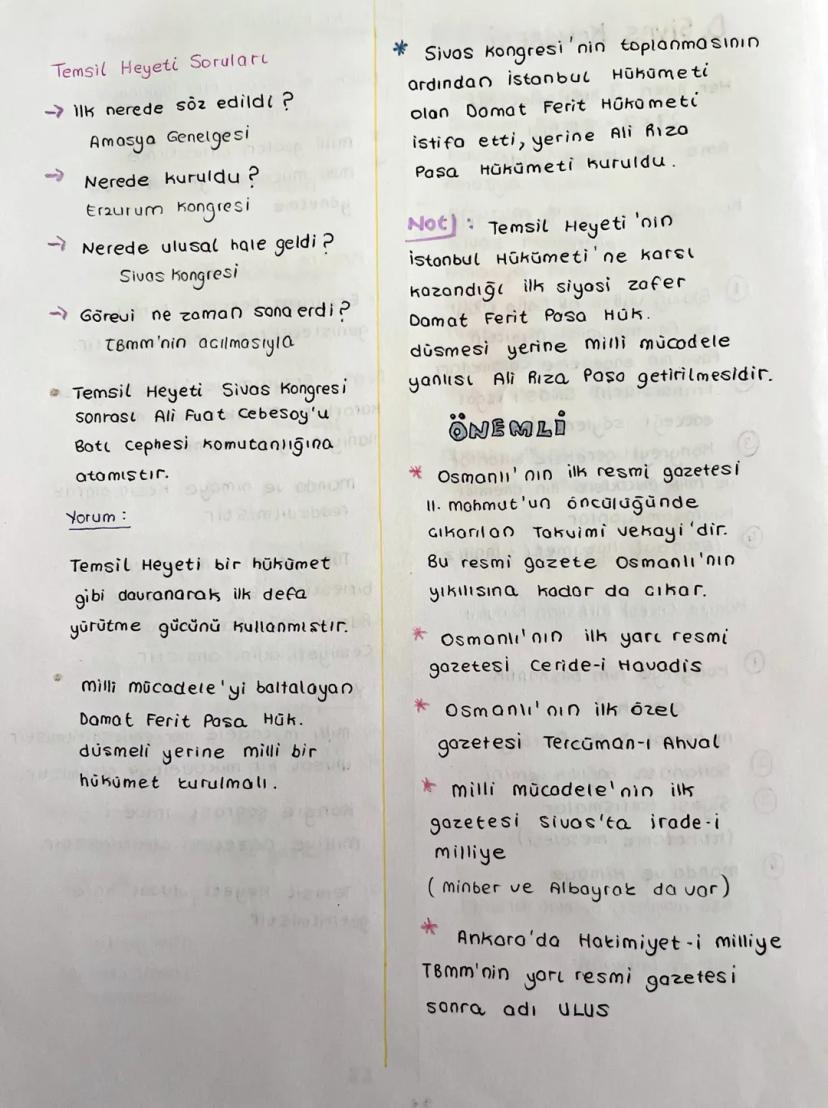 Temsil Heyeti Soruları
→ ilk nerede söz edildi?
Amasya Genelgesi
→ Nerede kuruldu?
Erzurum Kongresi
→ Nerede ulusal hale geldi?
Sivas Kongresi
→ Görevi ne zaman sona erdi?
TBMM'nin açılmasıyla
• Temsil Heyeti Sivas Kongresi
sonrası Ali Fuat Cebesoy'u
Batı Cephesi komutanlığına
atamıştır.
Yorum :
Temsil Heyeti bir hükümet
gibi davranarak ilk defa
yürütme gücünü kullanmıştır.
• Milli mücadele'yi baltalayan
Damat Ferit Paşa Hük.
düşmeli yerine milli bir
hükümet kurulmalı.
* Sivas Kongresi'nin toplanmasının
ardından İstanbul Hükümeti
olan Damat Ferit Hükümeti
istifa etti, yerine Ali Rıza
Paşa Hükümeti kuruldu.
Not) : Temsil Heyeti'nin
İstanbul Hükümeti'ne karşı
kazandığı ilk siyasi zafer
Damat Ferit Paşa Hük.
düşmesi yerine milli mücadele
yanlısı Ali Rıza Paşa getirilmesidir.
ÖNEMLİ
* Osmanlı'nın ilk resmi gazetesi
II. Mahmut'un öncülüğünde
çıkarılan Takvimi vekayi'dir.
Bu resmi gazete Osmanlı'nın
yıkılışına kadar da çıkar.
* Osmanlı'nın ilk yarı resmi
gazetesi Ceride-i Havadis
* Osmanlı'nın ilk özel
gazetesi Tercüman-ı Ahval
* Milli mücadele'nin ilk
gazetesi Sivas'ta irade-i
milliye
(minber ve Albayrak da var)
* Ankara'da Hakimiyet-i milliye
TBMM'nin yarı resmi gazetesi
sonra adı ULUS